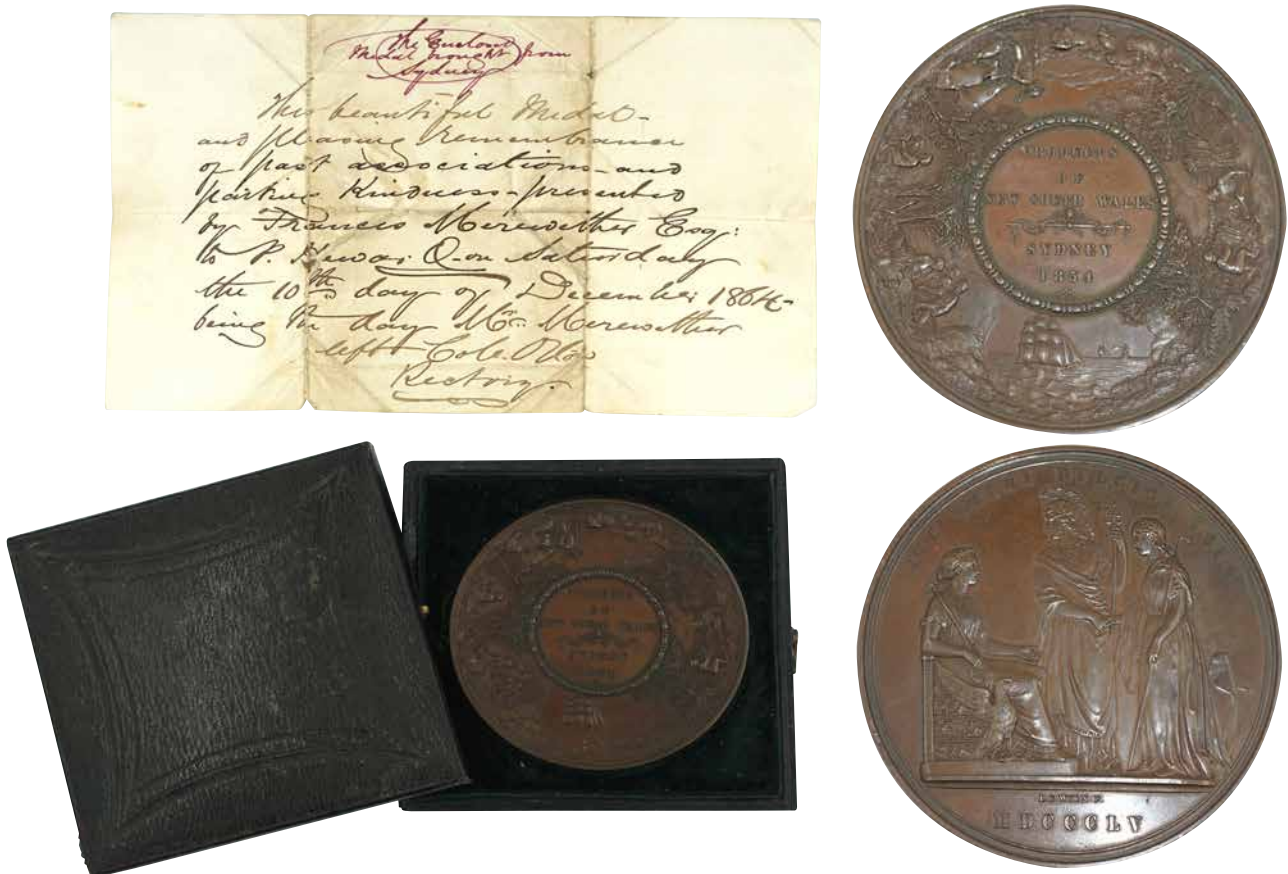 The Enclosed
Medal brought from
Sydney
This beautiful Medal-
and pleasing remembrance
of past associations and
parting Kindness-presented
by Francis Merewether Esq:
to P. on Saturday
the 10th day of December 1864-
being the day Mr. Merewether
left Cole Orton
Rectory.
OF
NEW SOUTH WALES
SYDNEY
1854
MDCCCLV